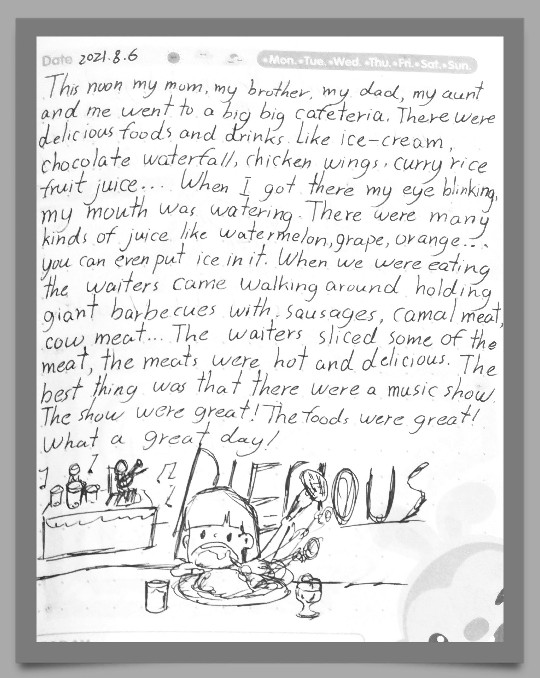 Date 2021.8.6 •Mon.•Tue.•Wed.•Thu.•Fri.•Sat.•Sun.
This noon my mom, my brother, my dad, my aunt
and me went to a big big cafeteria. There were
delicious foods and drinks. Like ice-cream,
chocolate waterfall, chicken wings, curry rice
fruit juice... When I got there my eye blinking,
my mouth was watering. There were many
kinds of juice like watermelon, grape, orange...
you can even put ice in it. When we were eating
the waiters came walking around holding
giant barbecues with sausages, camal meat,
cow meat... The waiters sliced some of the
meat, the meats were hot and delicious. The
best thing was that there were a music show.
The show were great! The foods were great!
What a great day!